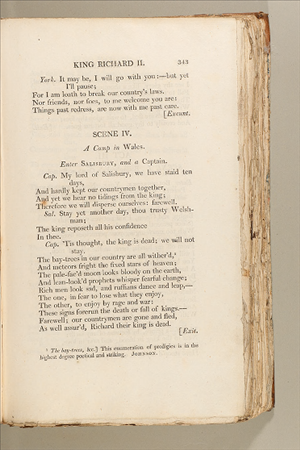 KING RICHARD II. 343
York. It may be, I will go with you:—but yet
I'll pause;
For I am loath to break our country's laws.
Nor friends, nor foes, to me welcome you are:
Things past redress, are now with me past care.
[Exeunt.
SCENE IV.
A Camp in Wales.
Enter SALISBURY, and a Captain.
Cap. My lord of Salisbury, we have staid ten
days,
And hardly kept our countrymen together,
And yet we hear no tidings from the king;
Therefore we will disperse ourselves: farewell.
Sal. Stay yet another day, thou trusty Welsh-
man;
The king reposeth all his confidence
In thee.
Cap. 'Tis thought, the king is dead; we will not
stay.
The bay-trees in our country are all wither'd,¹
And meteors fright the fixed stars of heaven;
The pale-fac'd moon looks bloody on the earth,
And lean-look'd prophets whisper fearful change;
Rich men look sad, and ruffians dance and leap,—
The one, in fear to lose what they enjoy,
The other, to enjoy by rage and war:
These signs forerun the death or fall of kings.—
Farewell; our countrymen are gone and fled,
As well assur'd, Richard their king is dead.
[Exit.
¹ The bay-trees, &c.] This enumeration of prodigies is in the
highest degree poetical and striking. JOHNSON.